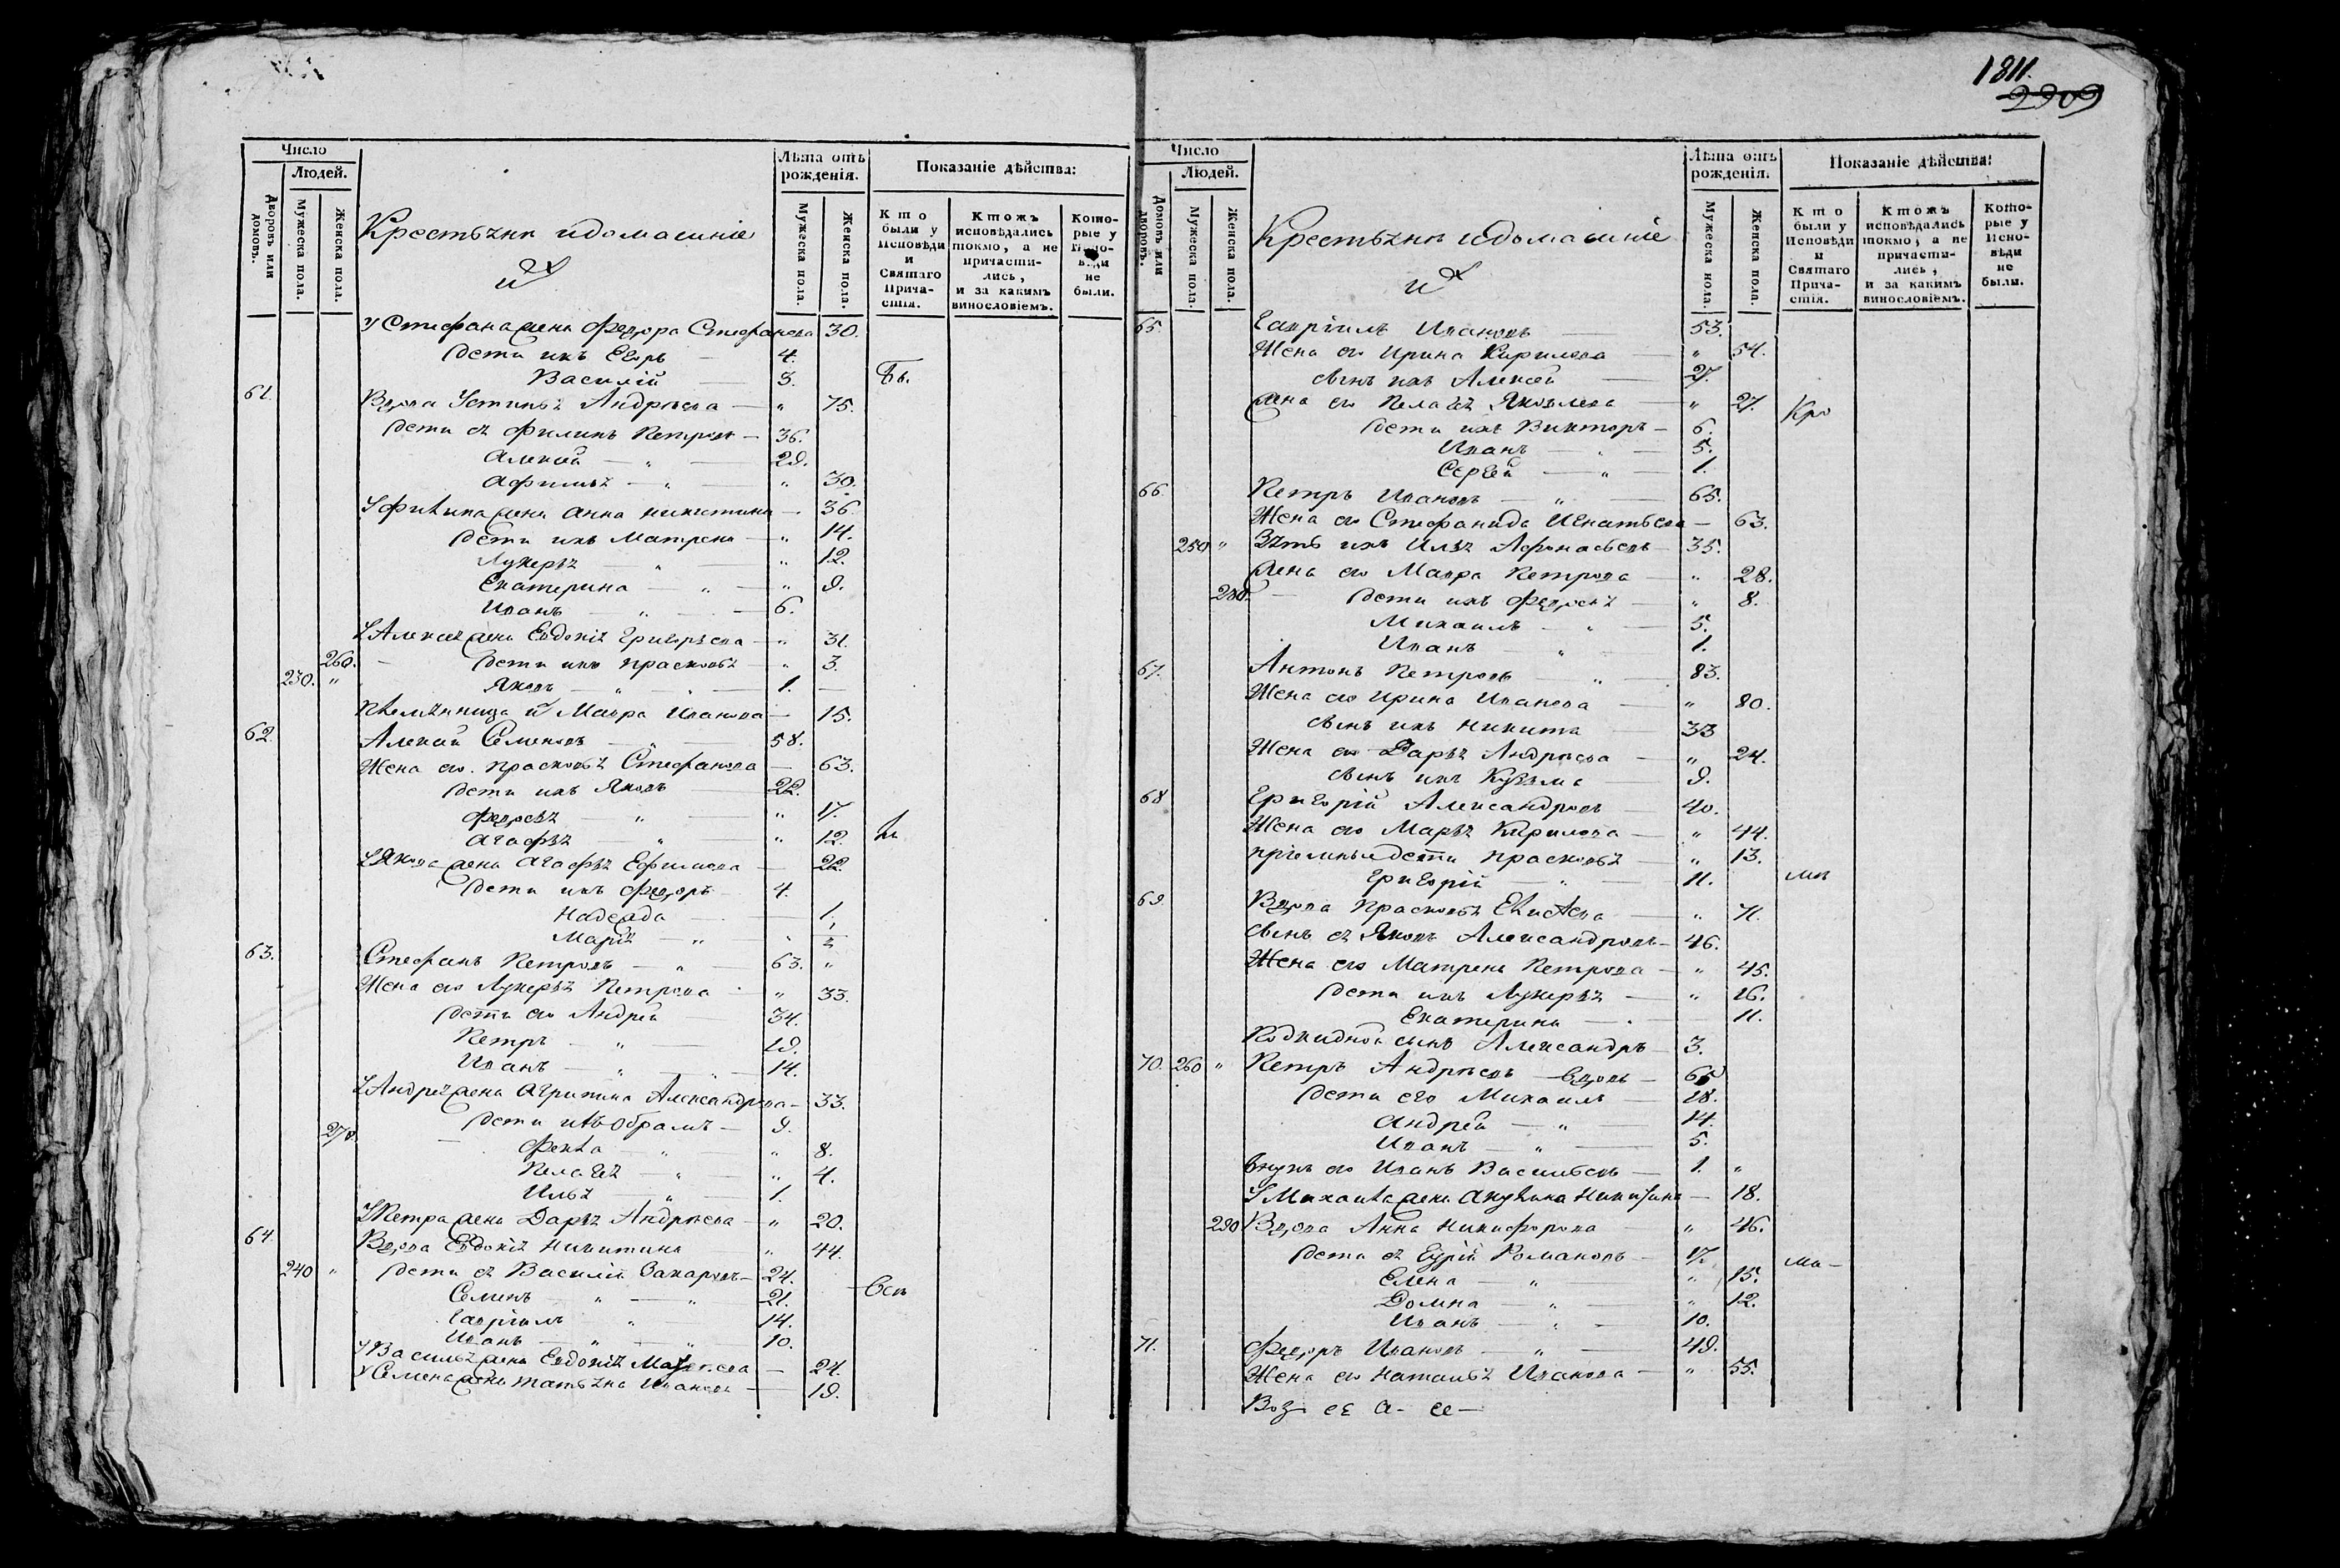 1811.
2909
Число
Людей.
Дворовъ или домовъ.
Мужеска пола.
Женска пола.
Крестьяня идомашніе
ихъ
Лѣта отъ рожденія.
Мужеска пола.
Женска пола.
Показаніе дѣйства:
Кто были у Исповѣди и Святаго Причастія.
Ктожъ исповѣдались токмо, а не причастились, и за какимъ винословіемъ.
Которые у Исповѣди не были.
У Стефана жена Федора Стефанова 30.
Дети ихъ Егоръ — 4.
Василій — 3. Бы.
61. Вдова Устинья Андреева — " 75.
Дети ея Филипъ Петровъ — 36.
Алексей — " — 29.
Афимья — " — " 30.
У Филипа жена Анна Никитина — 36.
Дети ихъ Матрена — " 14.
Лукерья — " — " 12.
Екатерина — " — " 9.
Иванъ — " — 6.
У Алексея жена Евдокія Григорьева — " 31.
260. — Дети ихъ Прасковья — " 3.
230. " Яковъ — " — " — 1. —
Племянница и Мавра Иванова — 15.
62. Алексей Семеновъ — " — 58.
Жена его Прасковья Стефанова — 63.
Дети ихъ Яковъ — 22.
Федосья — " — " 17.
Агафья — " — " 12. ли
У Якова жена Агафья Ефимова — 22.
Дети ихъ Федоръ 4.
Надежда — — 1.
Марія — "
63. Стефанъ Петровъ — " — 63. "
Жена его Лукерья Петрова — " 33.
Дети его Андрей — 34.
Петръ — " — 19.
Иванъ — " — 14.
У Андрея жена Агрипина Александрова — 33.
Дети ихъ Обрамъ — 9.
270. — Фекла — " — " 8.
Пелагея — " — " 4.
Илья — " — 1.
У Петра жена Дарья Андреева — " 20.
64. Вдова Евдокія Никитина " 44.
240 " Дети ея Василій Захаровъ — 24.
Семенъ — " — " 21. Всп
Гавріилъ " — 14.
Иванъ — " — " 10.
У Василья жена Евдокія Матвеева — 24.
У Семена жена Татьяна Иванова — 19.
Число
Людей.
Домовъ или дворовъ.
Мужеска пола.
Женска пола.
Крестьяня идомашніе
ихъ
Лѣта отъ рожденія.
Мужеска пола.
Женска пола.
Показаніе дѣйства:
Кто были у Исповѣди и Святаго Причастія.
Ктожъ исповѣдались токмо, а не причастились, и за какимъ винословіемъ.
Которые у Исповѣди не были.
65. Гавріилъ Ивановъ — 53.
Жена его Ирина Кирилова — " 54.
Сынъ ихъ Алексей — 27.
Жена его Пелагея Яковлева — " 27. Кро
Дети ихъ Викторъ — 6.
Иванъ — " — 5.
Сергей — " — 1.
66. Петръ Ивановъ — " — 65.
Жена его Стефанида Игнатьева — 63.
250 " Зять ихъ Илья Афонасьевъ — 35.
Жена его Мавра Петрова — " 28.
280. — Дети ихъ Федосья — " 8.
Михаилъ — " — 5.
Иванъ — " — 1.
67. Антонъ Петровъ — " — 83.
Жена его Ирина Иванова — " 80.
Сынъ ихъ Никита — 33
Жена его Дарья Андреева — " 24.
Сынъ ихъ Кузьма 9.
68 Григорій Александровъ — 40.
Жена его Марья Кирилова — " 44.
Пріемные дети Прасковья — " 13.
Григорій — " — 11. ми
69. Вдова Прасковья Елисеева — " 71.
Сынъ ея Яковъ Александровъ — 46.
Жена его Матрена Петрова — " 45.
Дети ихъ Лукерья — " 16.
Екатерина — " — 11.
Подкидной сынъ Александръ 3.
70. 260 " Петръ Андреевъ — вдовъ — 65
Дети его Михаилъ — 28.
Андрей — " — 14.
Иванъ — " — 5.
Внукъ его Иванъ Васильевъ — 1. "
У Михаила жена Акулина Никитина — 18.
290 Вдова Анна Никифорова " 46.
Дети ея Романовъ — 17. ма —
Елена — " " 15.
Домна — " — " 12.
Иванъ — " — 10.
71. Федоръ Ивановъ — " — 49.
Жена его Наталья Иванова — " 55.